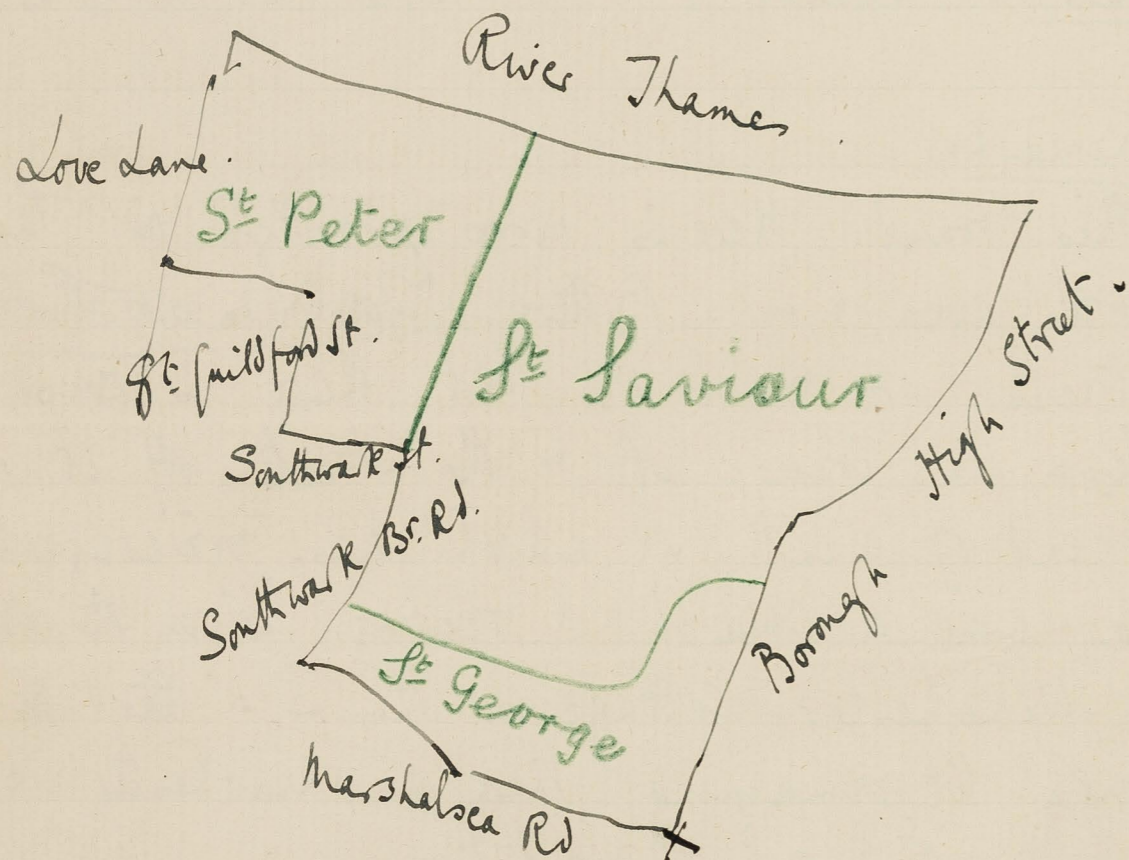 River Thames
Love Lane.
St Peter
Gt. Guildford St.
St Saviour
High Street.
Southwark St.
Southwark Br. Rd.
Borough
St George
Marshalsea Rd